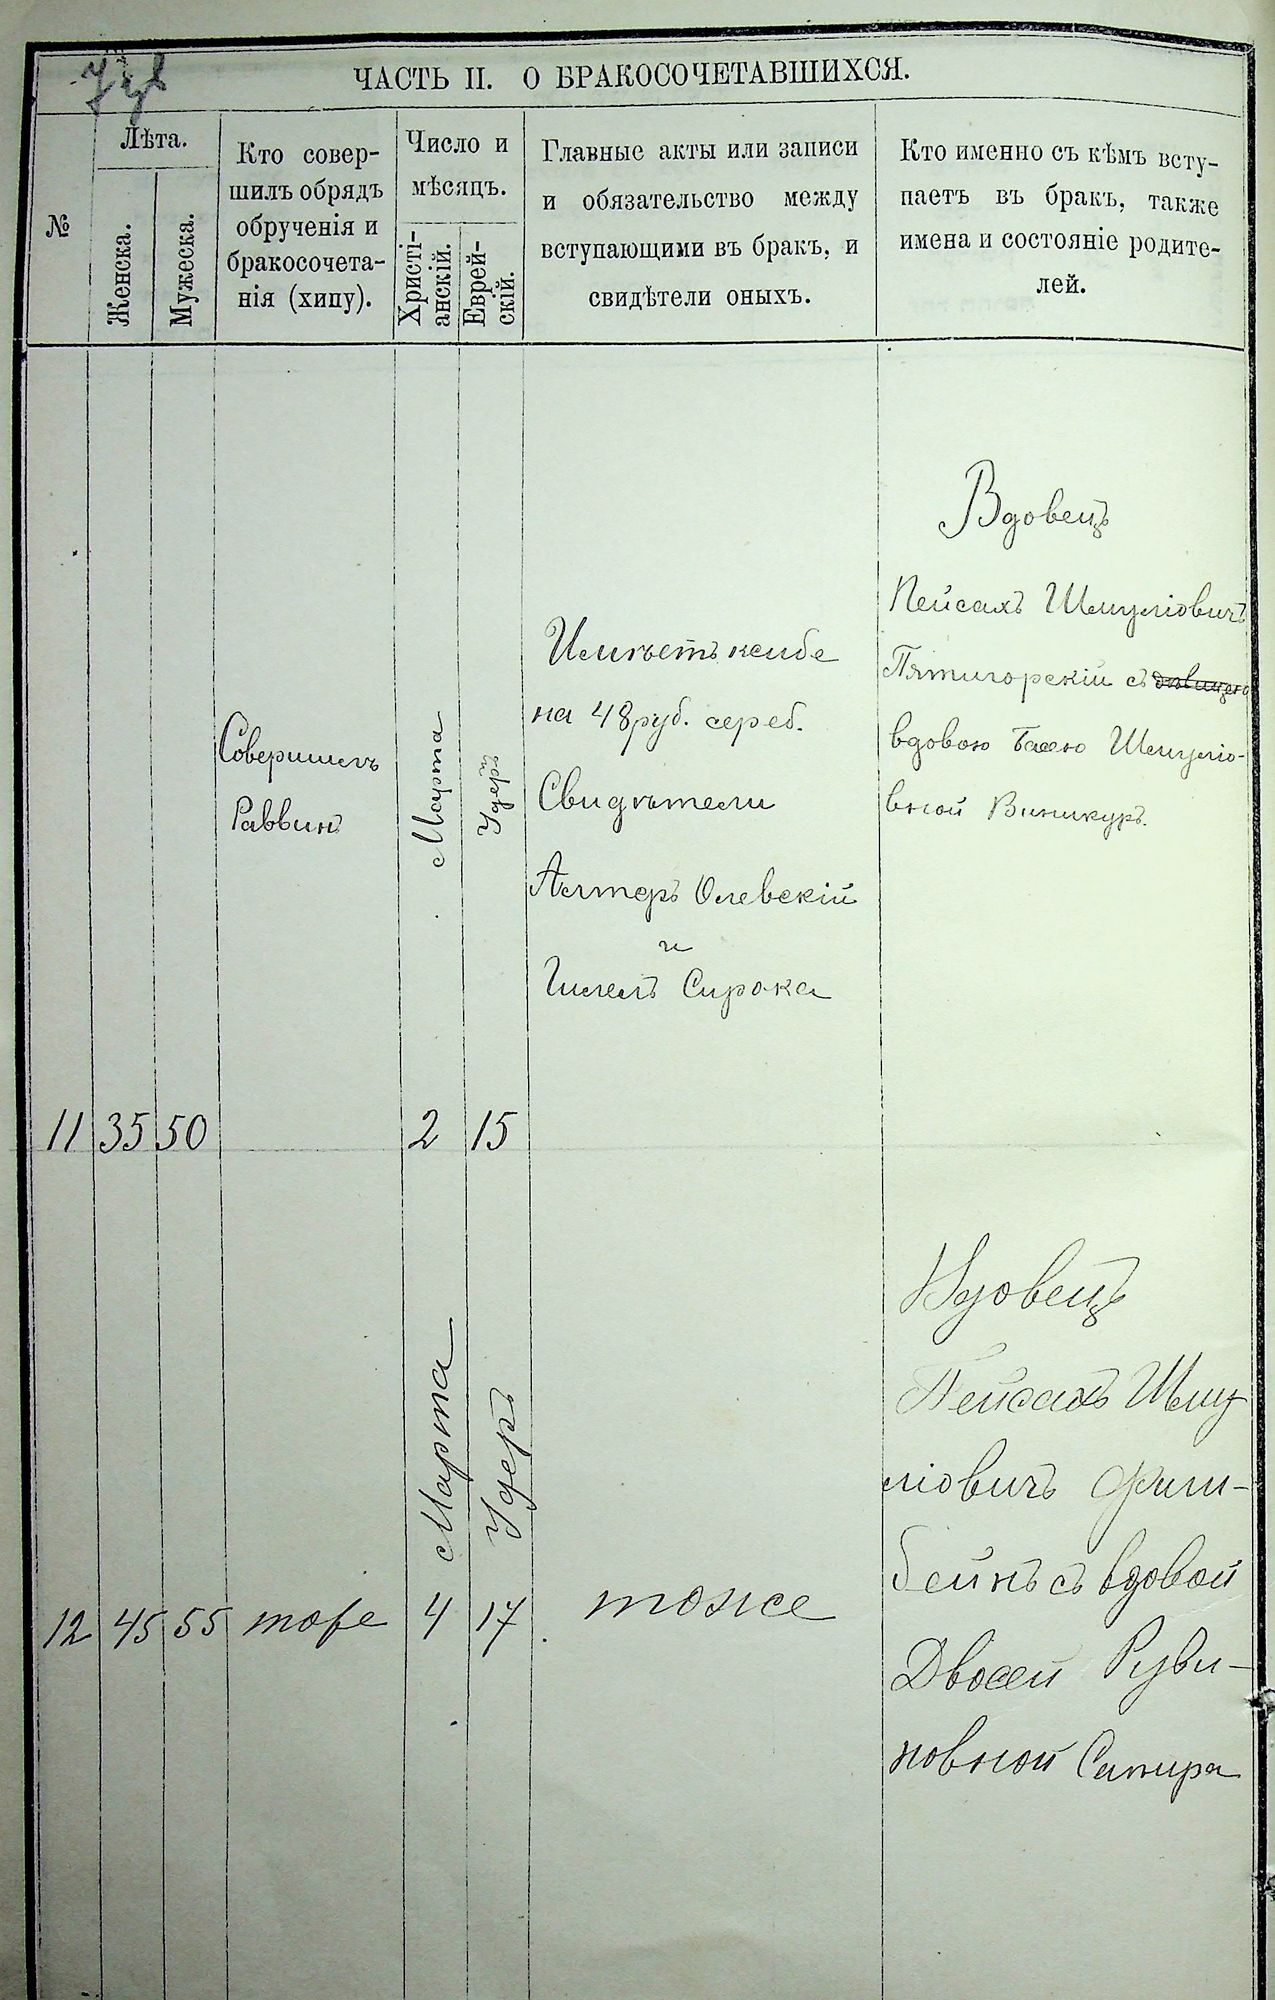 ЧАСТЬ II. О БРАКОСОЧЕТАВШИХСЯ.
№
Лѣта.
Женска.
Мужеска.
Кто совер-
шилъ обрядъ
обрученія и
бракосочета-
нія (хипу).
Число и
мѣсяцъ.
Христі-
анскій.
Еврей-
скій.
Главные акты или записи
и обязательство между
вступающими въ бракъ, и
свидѣтели оныхъ.
Кто именно съ кѣмъ всту-
паетъ въ бракъ, также
имена и состояніе родите-
лей.
11
35
50
Совершилъ
Раввинъ
Марта
2
Удеръ
15
Имѣетъ ксибе
на 48 руб. сереб.
Свидѣтели
Алтеръ Олевскій
и
Гилелъ Сирока
Вдовецъ
Пейсахъ Шмуліовичъ
Пятигорскій съ дѣвицею
вдовою Басею Шмуліо-
вной Виникуръ.
12
45
55
тоже
Марта
4
Удеръ
17
тоже
Вдовецъ
Пейсахъ Шму
ліовичъ Фли-
бейнъ съ вдовой
Двосей Руви-
новной Сапира